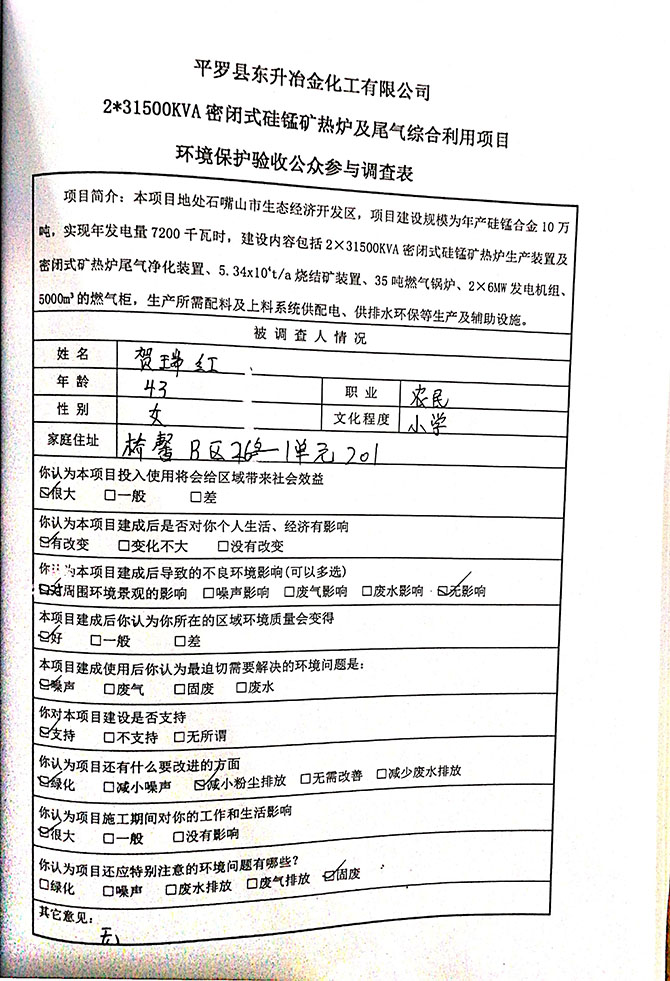 平罗县东升冶金化工有限公司
2*31500KVA 密闭式硅锰矿热炉及尾气综合利用项目
环境保护验收公众参与调查表
项目简介：本项目地处石嘴山市生态经济开发区，项目建设规模为年产硅锰合金 10 万
吨，实现年发电量 7200 千瓦时，建设内容包括 2×31500KVA 密闭式硅锰矿热炉生产装置及
密闭式矿热炉尾气净化装置、5.34x10⁴t/a 烧结矿装置、35 吨燃气锅炉、2×6MW 发电机组、
5000m³的燃气柜，生产所需配料及上料系统供配电、供排水环保等生产及辅助设施。
被调查人情况
姓名 贺瑞红
年龄 43 职业 农民
性别 女 文化程度 小学
家庭住址 馨B区 1单元 201
你认为本项目投入使用将会给区域带来社会效益
☑很大 □一般 □差
你认为本项目建成后是否对你个人生活、经济有影响
☑有改变 □变化不大 □没有改变
你认为本项目建成后导致的不良环境影响(可以多选)
☑对周围环境景观的影响 □噪声影响 □废气影响 □废水影响 ☑无影响
本项目建成后你认为你所在的区域环境质量会变得
☑好 □一般 □差
本项目建成使用后你认为最迫切需要解决的环境问题是：
☑噪声 □废气 □固废 □废水
你对本项目建设是否支持
☑支持 □不支持 □无所谓
你认为项目还有什么要改进的方面
☑绿化 □减小噪声 ☑减小粉尘排放 □无需改善 □减少废水排放
你认为项目施工期间对你的工作和生活影响
☑很大 □一般 □没有影响
你认为项目还应特别注意的环境问题有哪些？
□绿化 □噪声 □废水排放 □废气排放 ☑固废
其它意见：
无